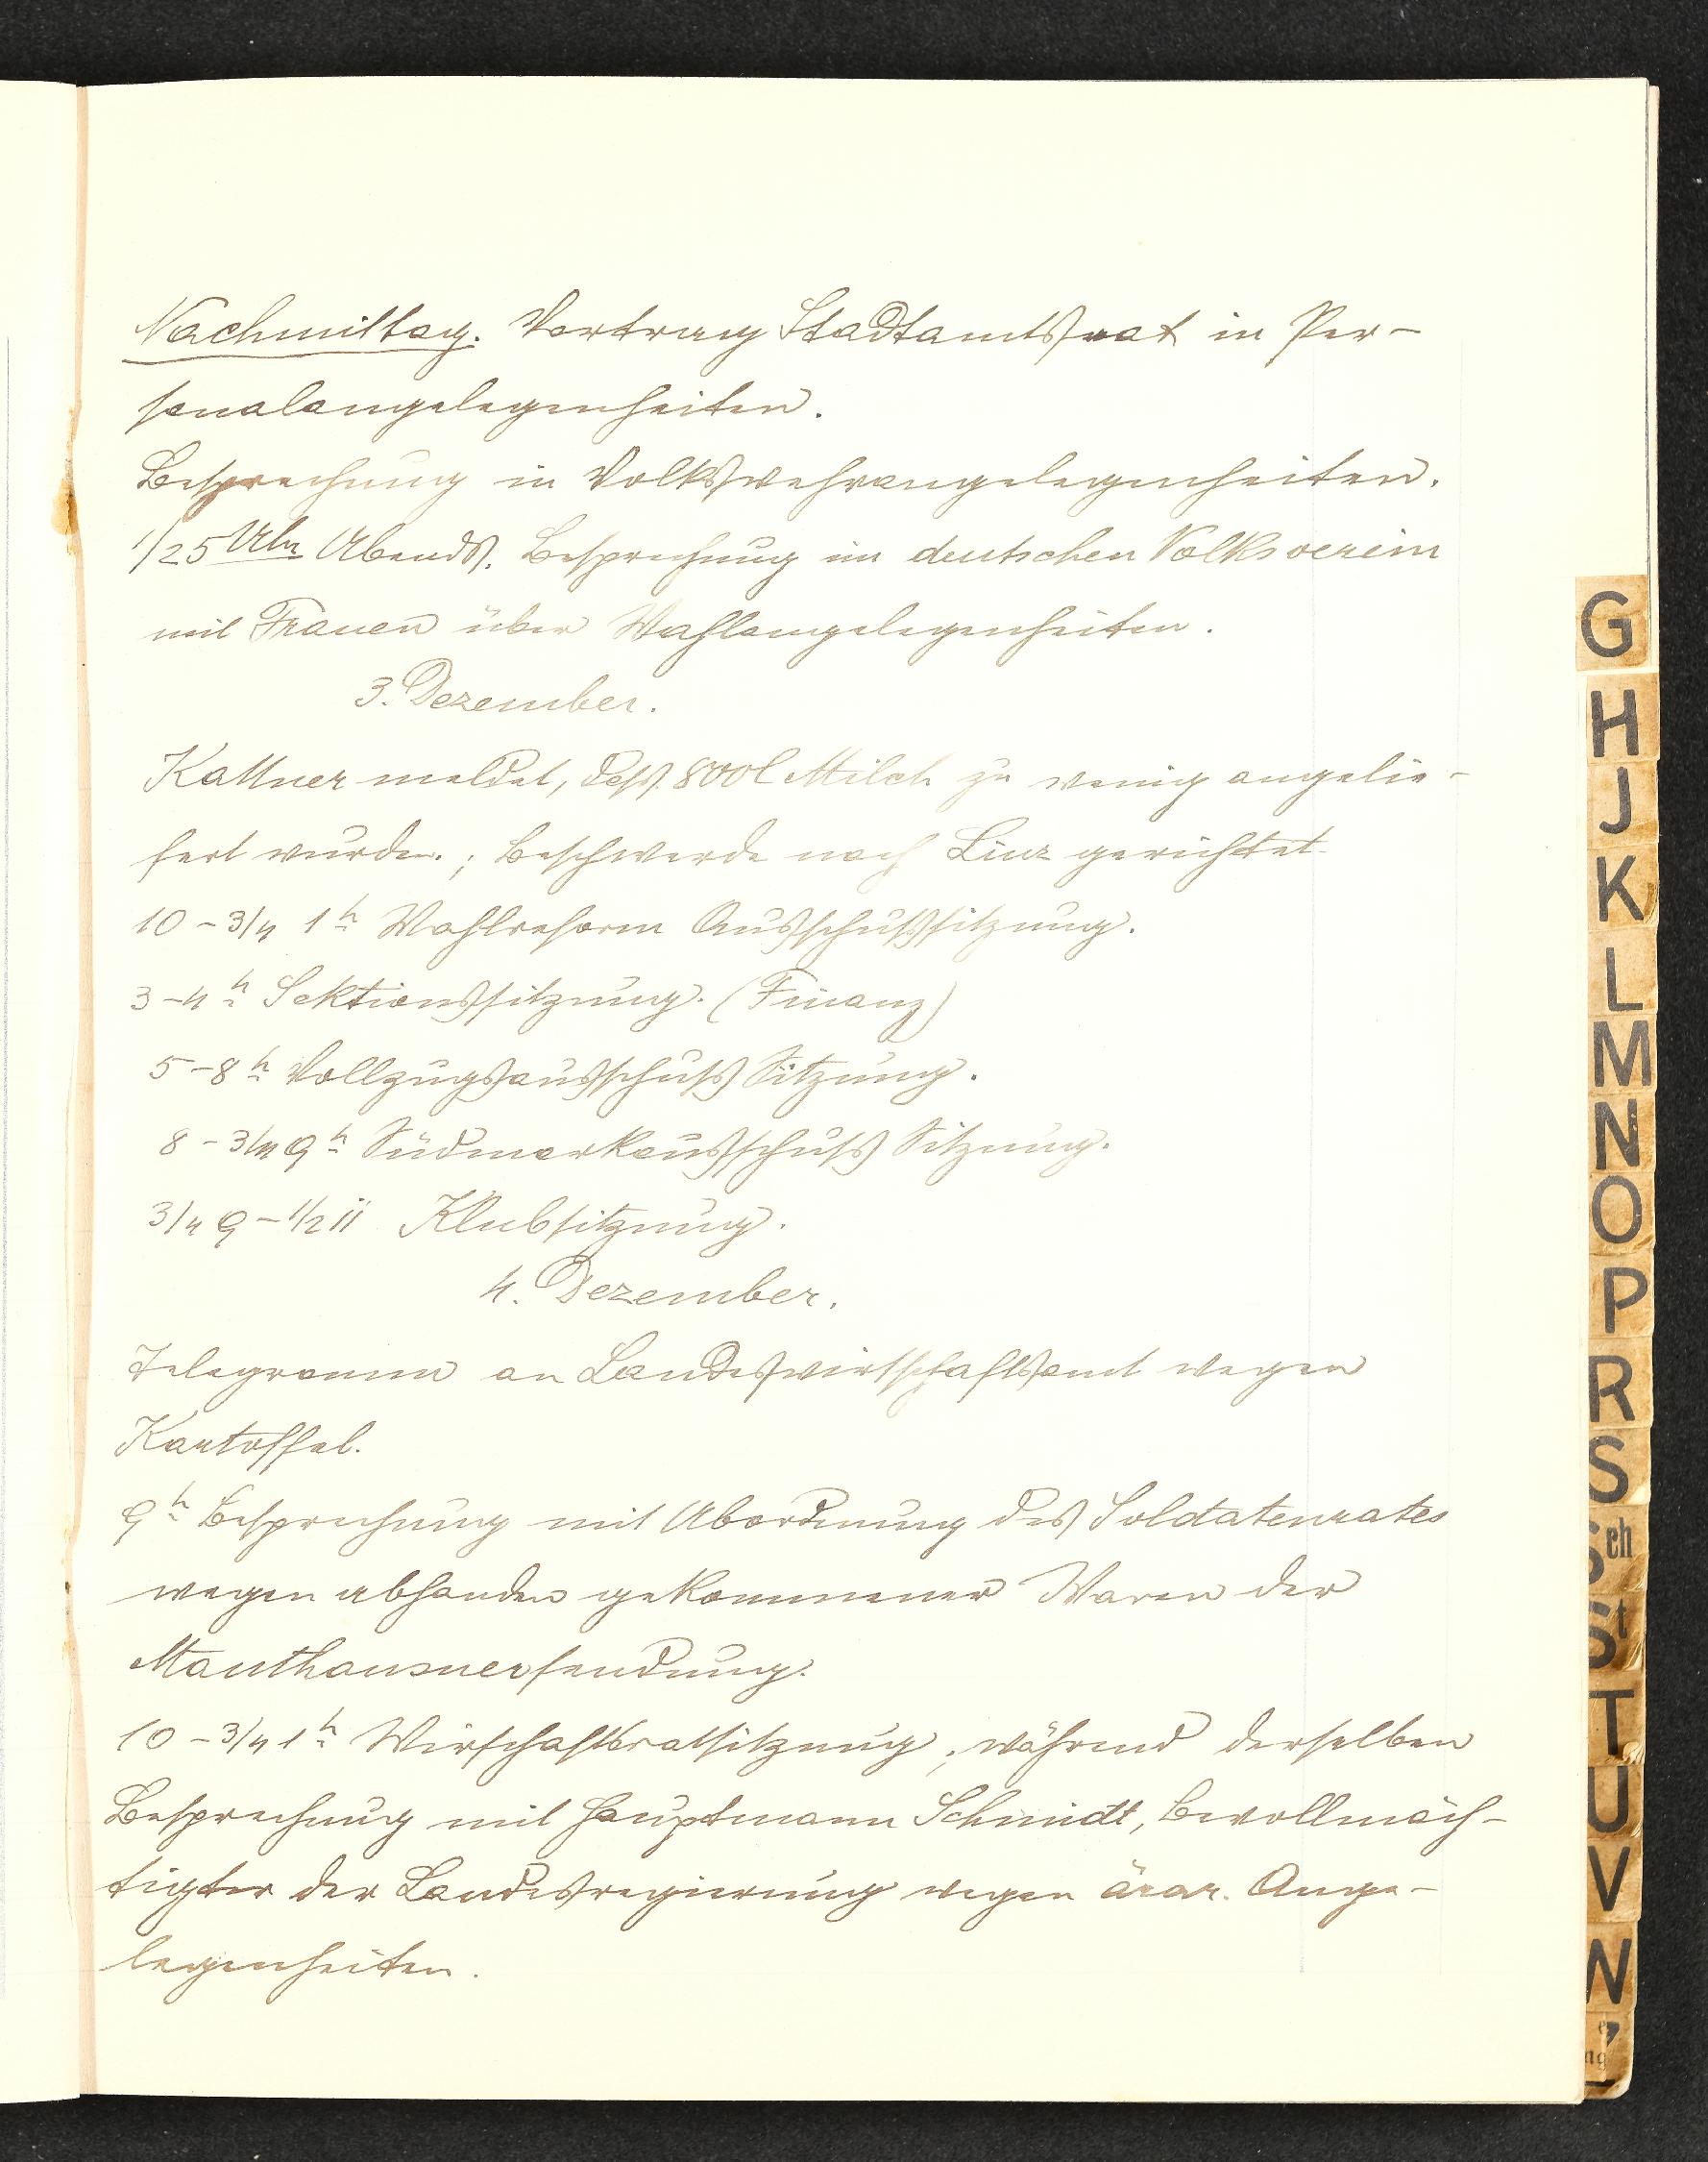 Nachmittag. Vortrag Stadtamtsrat in Per-
sonalangelegenheiten.
Besprechung in Volkswehrangelegenheiten.
1/25 Uhr Abends. Besprechung im deutschen Volksverein
mit Frauen über Wahlangelegenheiten.
3. Dezember.
Kattner meldet, daß 800 l Milch zu wenig angelie-
fert wurden.; Beschwerde nach Linz gerichtet
10 - 3/4 1h Wahlreform Ausschußsitzung.
3-4h Sektionssitzung. (Finanz)
5-8h Vollzugsausschuß Sitzung.
8 - 3/4 9h Südmarkausschuß Sitzung.
3/4 9 - 1/2 11 Klubsitzung.
4. Dezember.
Telegramm an Landeswirtschaftsamt wegen
Kartoffel.
9h Besprechung mit Abordnung des Soldatenrates
wegen abhanden gekommener Waren der
Mauthausnersendung.
10 - 3/4 1h Wirschaftsratsitzung; während derselben
Besprechung mit Hauptmann Schmidt, Bevollmäch-
tigter der Landesregierung wegen ärar. Ange-
legenheiten.
G
H
J
K
L
M
N
O
P
R
S
Sch
St
T
U
V
W